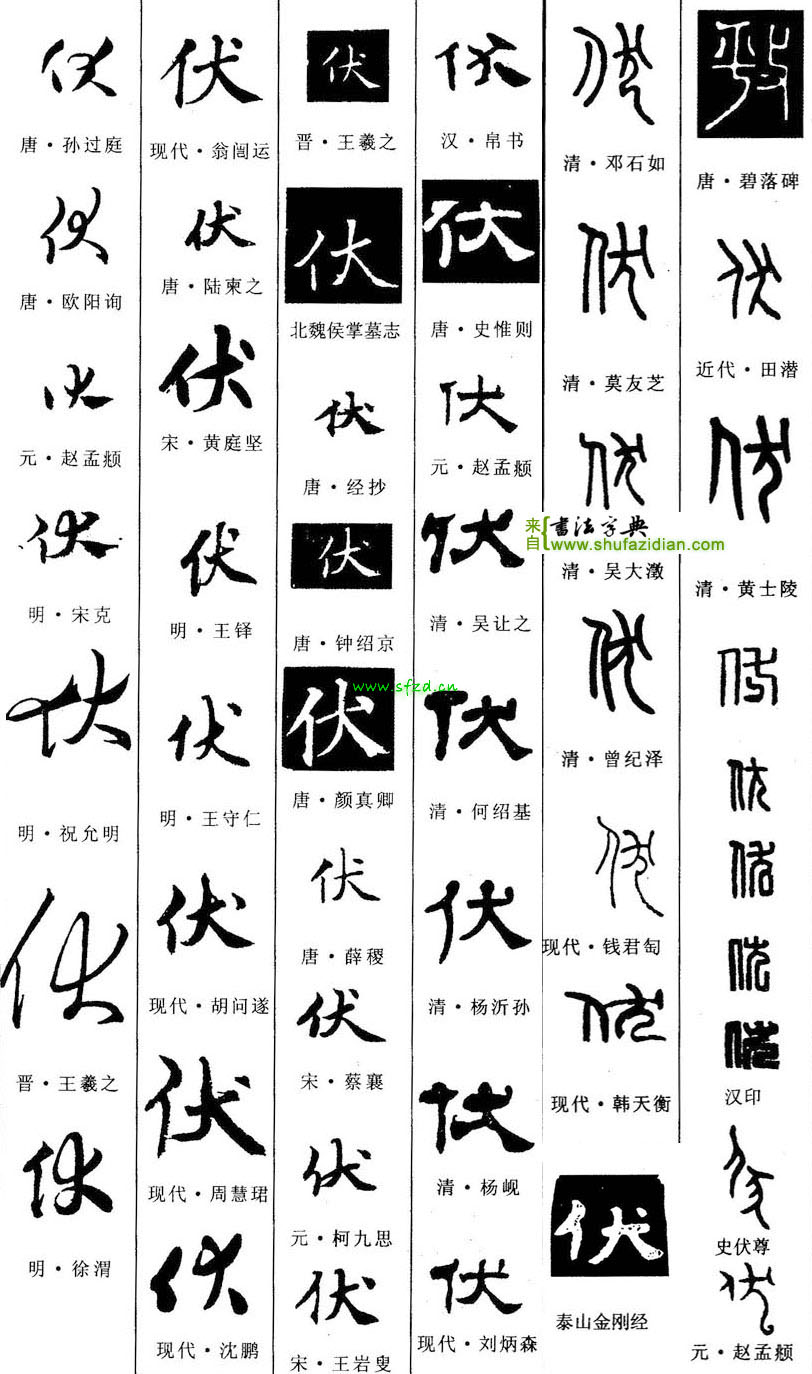 伏
唐·孙过庭
伏
唐·欧阳询
伏
元·赵孟頫
伏
明·宋克
伏
明·祝允明
伏
晋·王羲之
伏
明·徐渭
伏
现代·翁闿运
伏
唐·陆柬之
伏
宋·黄庭坚
伏
明·王铎
伏
明·王守仁
伏
现代·胡问遂
伏
现代·周慧珺
伏
现代·沈鹏
伏
晋·王羲之
伏
北魏侯掌墓志
伏
唐·经抄
伏
唐·钟绍京
www.sfzd.cn
伏
唐·颜真卿
伏
唐·薛稷
伏
宋·蔡襄
伏
元·柯九思
伏
宋·王岩叟
伏
汉·帛书
伏
唐·史惟则
伏
元·赵孟頫
伏
清·吴让之
伏
清·何绍基
伏
清·杨沂孙
伏
清·杨岘
伏
现代·刘炳森
伏
清·邓石如
伏
清·莫友芝
伏
来自{書法字典
www.shufazidian.com
清·吴大澂
伏
清·曾纪泽
伏
现代·钱君匋
伏
现代·韩天衡
伏
泰山金刚经
唐·碧落碑
伏
近代·田潜
伏
清·黄士陵
伏
伏
伏
伏
伏
汉印
伏
史伏尊
伏
元·赵孟頫